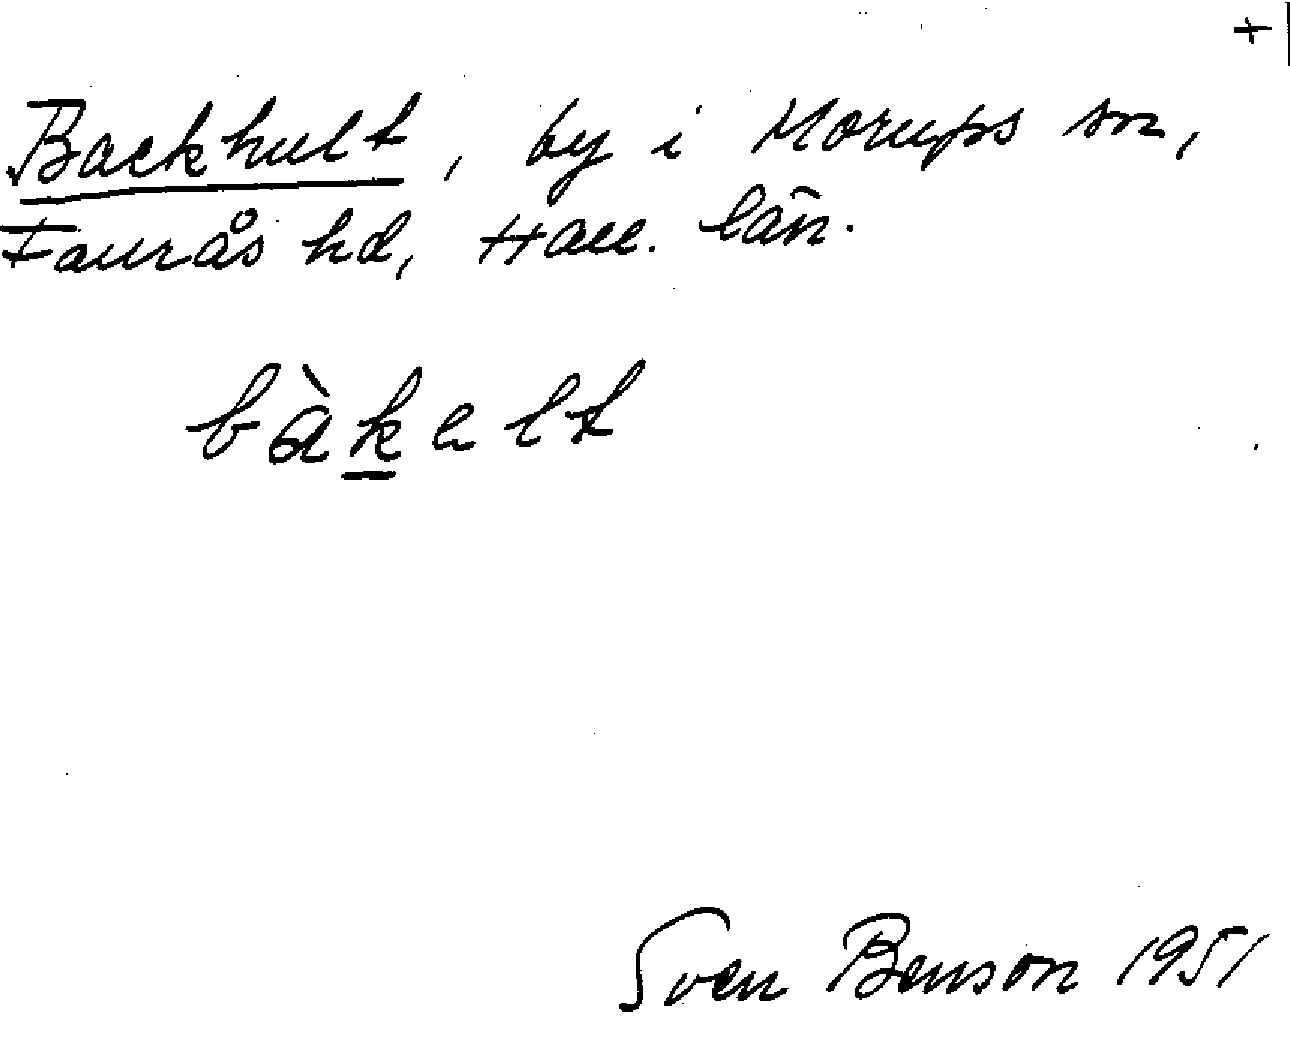 +
Backhult, by i Morups sn,
Faurås hd, Hall. län.
bàkelt
Sven Benson 1951